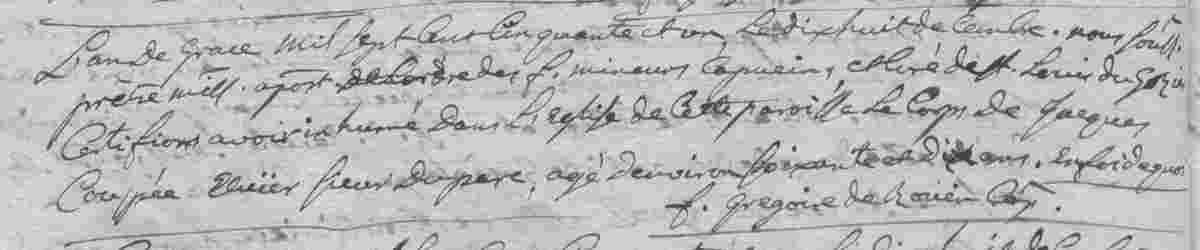 L'an de grace mil sept cent cinquante et un le dix huit decembre. nous souss.
prêtre miss. apost. de l'ordre des f. mineurs capucins, et curé de St. Louis du
Certifions avoir inhumé dans l'Eglise de Cette paroisse Le Corps de Jacques
Couppée Ecuier sieur Dupare, agé denviron soixante et dix ans. En foi de quoi
f. Gregoire de Rouën Cap.